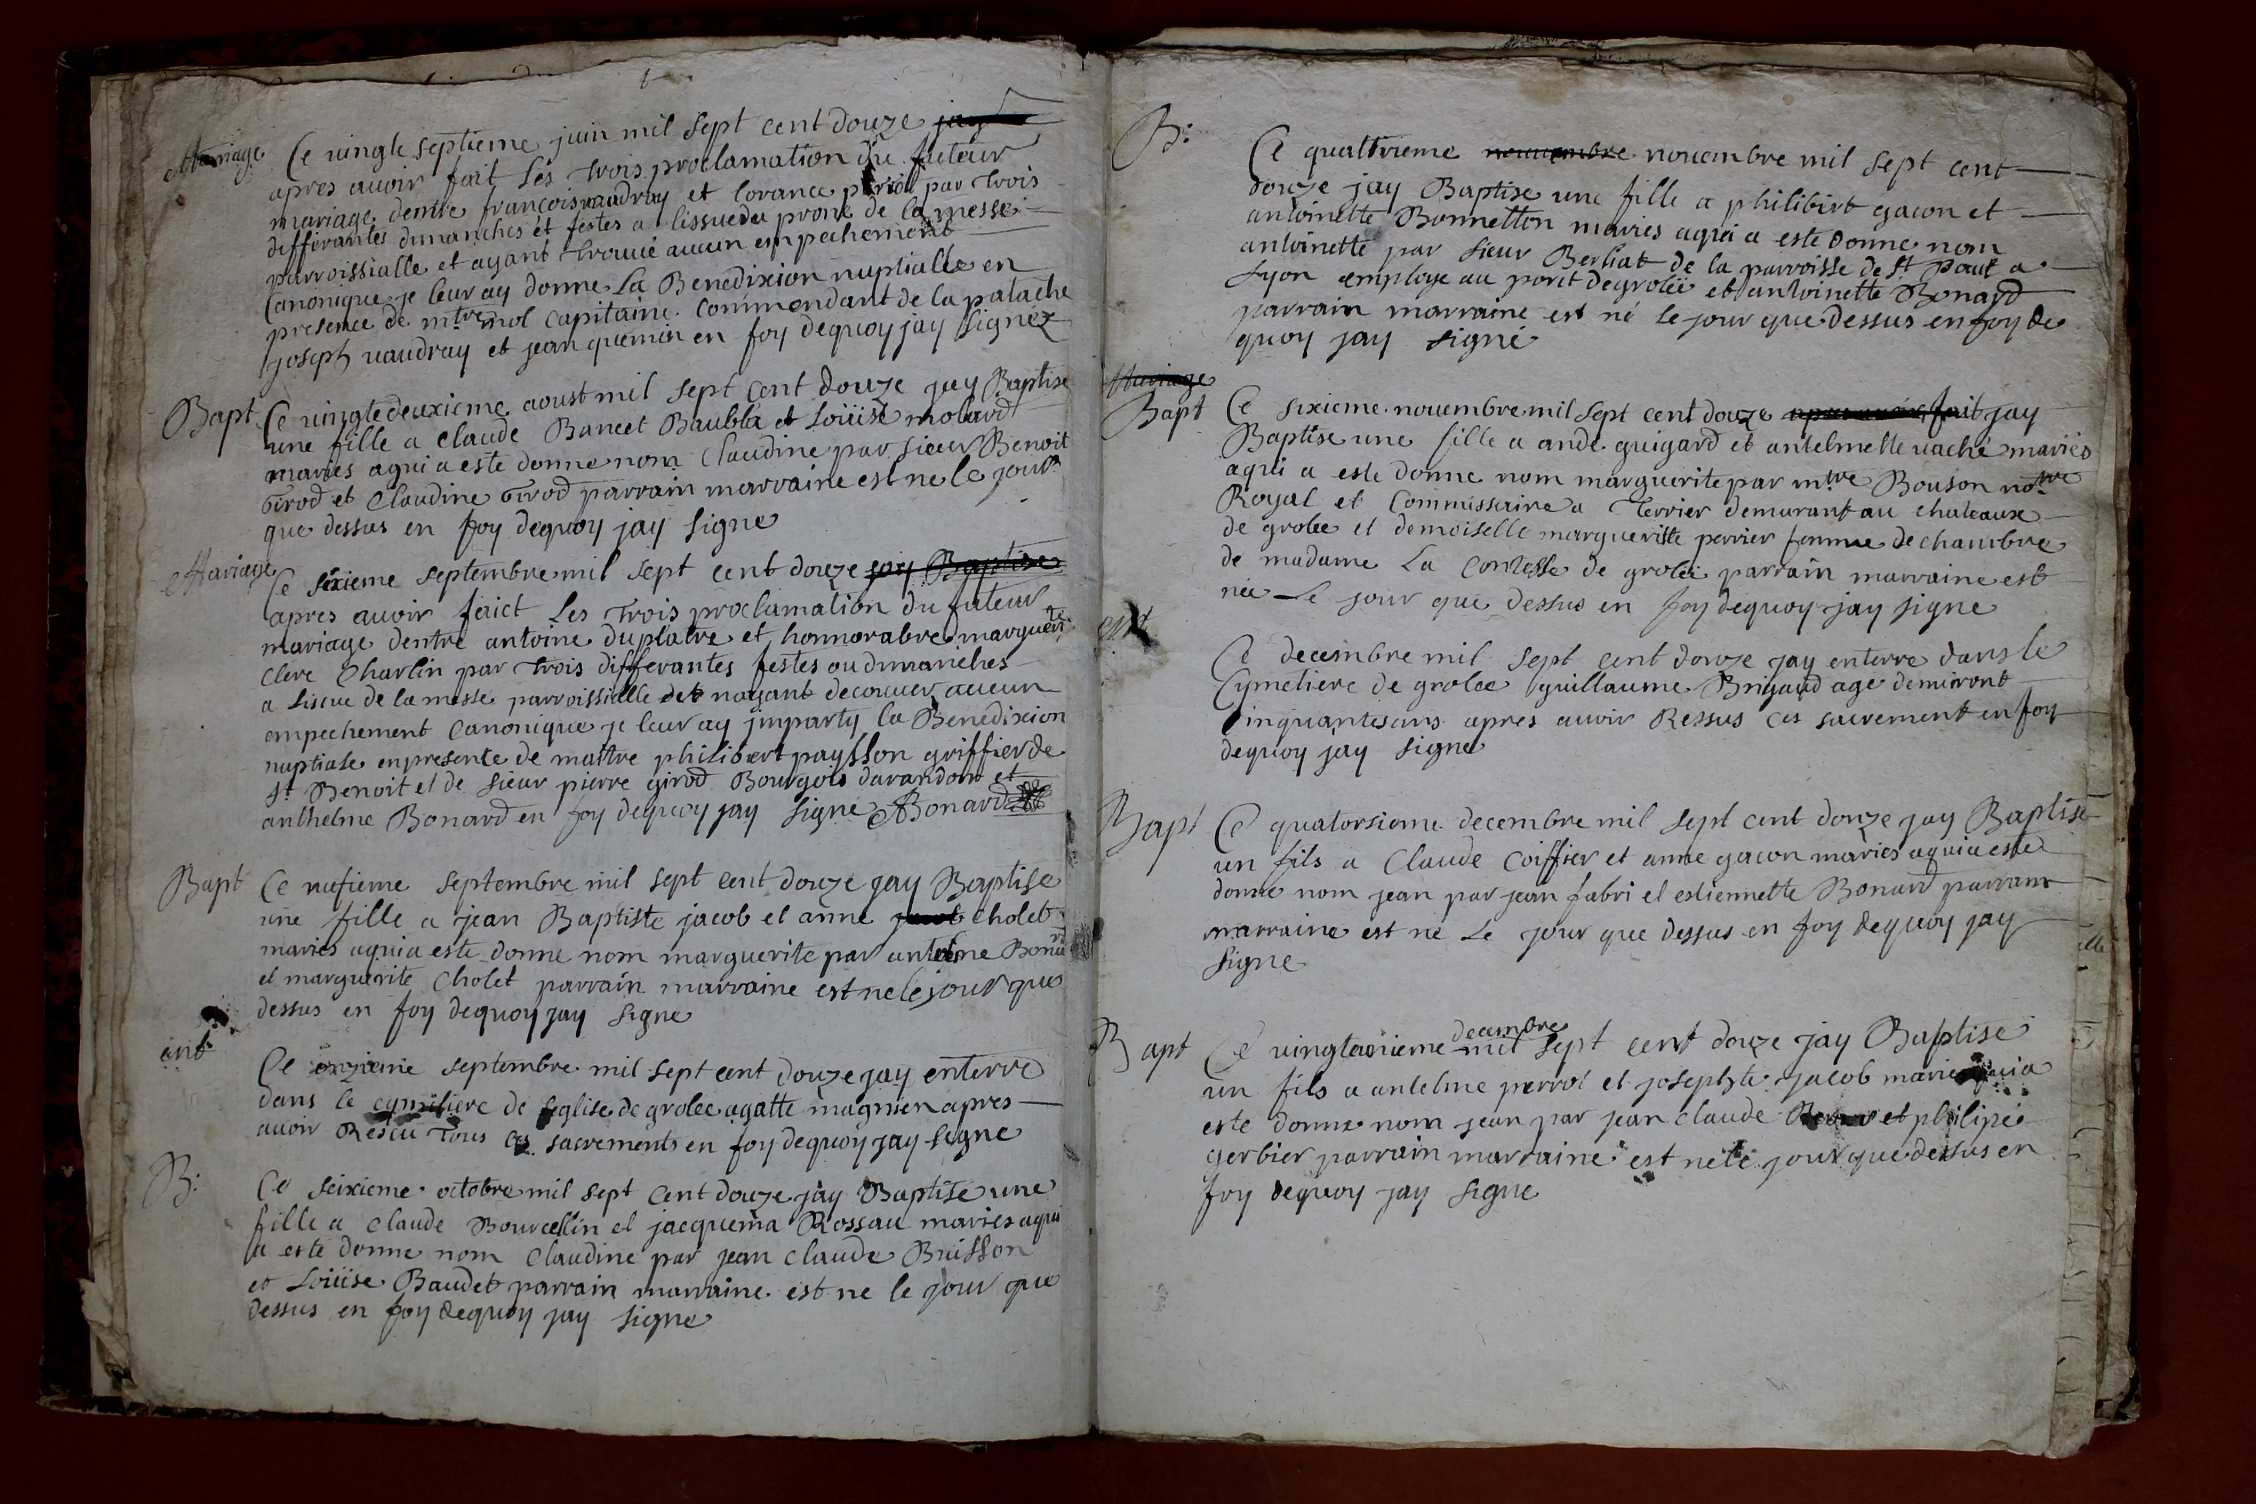 Mariage Ce vingte septieme juin mil sept cent douze
apres avoir fait les trois proclamation du futeur
mariage dentre francois vaudray et lorance par trois
differantes dimanches et festes a lissue du prone de la messe
parroissialle et ayant trouvé aucun empechement
Canonique je leur ay donne La Benedixion nuptialle en
presence de mtre mol Capitaine Commendant de la patache
joseph vaudray et jean quemin en foy dequoy jay signez
Bapt Ce vingte deuxieme aoust mil sept cent douze jay Baptise
une fille a Claude Bancet Baubla et Loüise molard
maries aqui a este donne nom Claudine par sieur Benoit
Girod et Claudine Girod parrain marraine est ne le jour
que dessus en foy dequoy jay signe
Mariage Ce sixieme septembre mil sept cent douze jay Baptise
apres avoir faict Les trois proclamation du futeur
mariage dentre antoine duplatre et honnorabre marguerite
Clere Charlin par trois differantes festes ou dimanches
a Lissue de la messe parroissialle et nayant decouver aucun
empechement Canonique je leur ay imparty la Benedixion
nuptiale en presence de maitre philibert paysson griffier de
st Benoit et de sieur pierre girod Bourgois davandon et
anthelme Bonard en foy dequoy jay signe ABonard
Bapt Ce nufieme septembre mil sept cent douze jay Baptise
une fille a jean Baptiste jacob et anne Cholet
maries aqui a este donne nom marguerite par antelme Bonard
et marguerite Cholet parrain marraine est ne le jour que
dessus en foy dequoy jay signe
ant
Ce onzieme septembre mil sept cent douze jay enterre
dans le cymitiere de leglise de grolee agatte magnien apres
avoir Rescu tous ces sacrements en foy dequoy jay signe
B: Ce seixieme octobre mil sept cent douze jay Baptise une
fille a Claude Bourcellin et jacquema Rossau maries aqui
a este donne nom Claudine par jean Claude Buisson
et Loüise Baudet parrain marraine est ne le jour que
dessus en foy dequoy jay signe
B:
Ce quattrieme nouvembre novembre mil sept cent
douze jay Baptise une fille a philibert gacon et
antoinette Bonnetton maries aqui a este donne nom
antoinette par sieur Berliat de la parroisse de st Paul a
Lyon employe au port de grolee et antoinette Bonard
parrain marraine est né le jour que dessus en foy de
quoy jay signé
Mariage
Bapt Ce sixieme novembre mil sept cent douze apres avoir fait jay
Baptise une fille a andé guigard et antelmette vaché mariés
aqui a este donne nom marguerite par mtre Bouson notre
Royal et Commissaire a Terrier demurant au chateaux
de grolee et demoiselle margueritte perrier femme de chambre
de madame La Contesse de grolee parrain marraine est
née Le jour que dessus en foy dequoy jay signe
Ce decembre mil sept cent douze jay enterre dans le
Cymetiere de grolee guillaume Brigaud age demiront
Cinquantes ans apres avoir Ressus ces sacrement en foy
dequoy jay signe
Bapt Ce quatorsieme decembre mil sept cent douze jay Baptise
un fils a Claude Coiffier et anne gacon maries aqui a este
donne nom jean par jean fabri et estiennette Bonard parrain
marraine est ne Le jour que dessus en foy dequoy jay
signe
decembre
Bapt Ce vingtunieme mil sept cent douze jay Baptise
un fils a antelme perrot et josephte jacob maries aqui a
este donne nom jean par jean Claude et philipe
gerbier parrain marraine est ne le jour que dessus en
foy dequoy jay signe